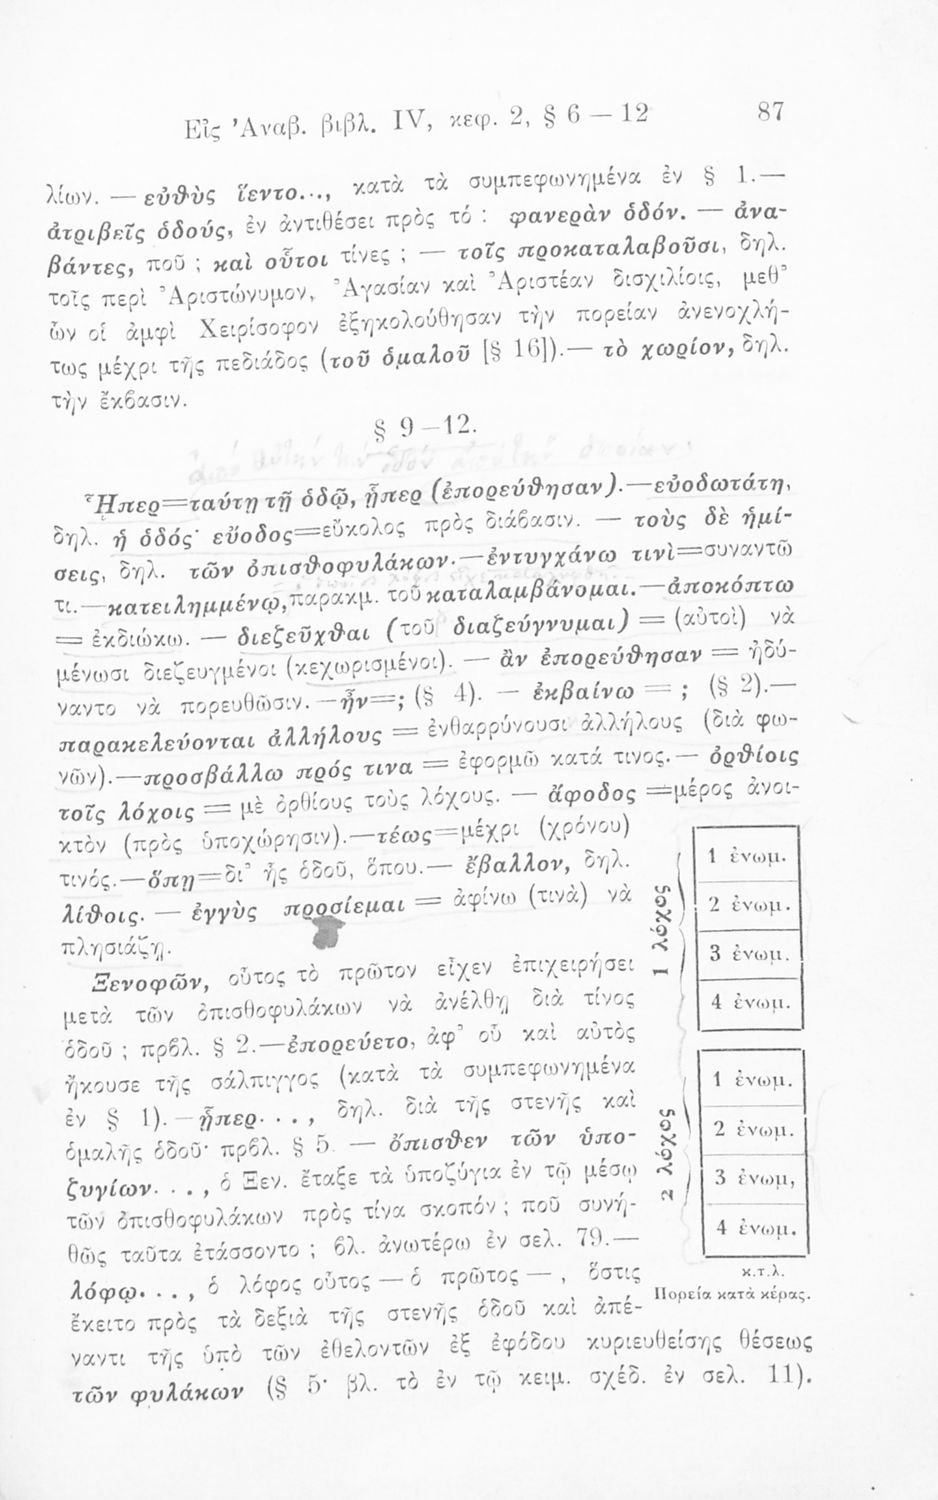 Εἰς Ἀναβ. βιβλ. IV, κεφ. 2, § 6 — 12 87
λίων. — εὐθὺς ἵεντο..., κατὰ τὰ συμπεφωνημένα ἐν § 1.—
ἀτριβεῖς ὁδούς, ἐν ἀντιθέσει πρὸς τό : φανερὰν ὁδόν. — ἀνα-
βάντες, ποῦ ; καὶ οὗτοι τίνες ; — τοῖς προκαταλαβοῦσι, δηλ.
τοῖς περὶ Ἀριστώνυμον, Ἀγασίαν καὶ Ἀριστέαν δισχιλίοις, μεθ᾽
ὧν οἱ ἀμφὶ Χειρίσοφον ἐξηκολούθησαν τὴν πορείαν ἀνενοχλή-
τως μέχρι τῆς πεδιάδος (τοῦ ὁμαλοῦ [§ 16]).— τὸ χωρίον, δηλ.
τὴν ἔκβασιν.
§ 9—12.
Ἧπερ=ταύτῃ τῇ ὁδῷ, ᾗπερ (ἐπορεύθησαν).—εὐοδωτάτη,
δηλ. ἡ ὁδός· εὔοδος=εὔκολος πρὸς διάβασιν. — τοὺς δὲ ἡμί-
σεις, δηλ. τῶν ὀπισθοφυλάκων.—ἐντυγχάνω τινὶ=συναντῶ
τι.—κατειλημμένῳ, παρακμ. τοῦ καταλαμβάνομαι.—ἀποκόπτω
= ἐκδιώκω. — διεζεῦχθαι (τοῦ διαζεύγνυμαι) = (αὐτοὶ) νὰ
μένωσι διεζευγμένοι (κεχωρισμένοι). — ἂν ἐπορεύθησαν = ἠδύ-
ναντο νὰ πορευθῶσιν.—ἦν=; (§ 4). — ἐκβαίνω = ; (§ 2).—
παρακελεύονται ἀλλήλους = ἐνθαρρύνουσι ἀλλήλους (διὰ φω-
νῶν).—προσβάλλω πρός τινα = ἐφορμῶ κατά τινος.— ὀρθίοις
τοῖς λόχοις = μὲ ὀρθίους τοὺς λόχους. — ἄφοδος =μέρος ἀνοι-
κτὸν (πρὸς ὑποχώρησιν).—τέως=μέχρι (χρόνου)
τινός.—ὅπῃ=δι᾽ ἧς ὁδοῦ, ὅπου.— ἔβαλλον, δηλ.
λίθοις. — ἐγγὺς προσίεμαι = ἀφίνω (τινὰ) νὰ
πλησιάζῃ.
Ξενοφῶν, οὗτος τὸ πρῶτον εἶχεν ἐπιχειρήσει
μετὰ τῶν ὀπισθοφυλάκων νὰ ἀνέλθῃ διὰ τίνος
ὁδοῦ ; πρβλ. § 2.—ἐπορεύετο, ἀφ᾽ οὗ καὶ αὐτὸς
ἤκουσε τῆς σάλπιγγος (κατὰ τὰ συμπεφωνημένα
ἐν § 1).—ᾗπερ..., δηλ. διὰ τῆς στενῆς καὶ
ὁμαλῆς ὁδοῦ· πρβλ. § 5. — ὄπισθεν τῶν ὑπο-
ζυγίων..., ὁ Ξεν. ἔταξε τὰ ὑποζύγια ἐν τῷ μέσῳ
τῶν ὀπισθοφυλάκων πρὸς τίνα σκοπόν ; ποῦ συνή-
θως ταῦτα ἐτάσσοντο ; βλ. ἀνωτέρω ἐν σελ. 79.—
λόφῳ..., ὁ λόφος οὗτος — ὁ πρῶτος — , ὅστις
ἔκειτο πρὸς τὰ δεξιὰ τῆς στενῆς ὁδοῦ καὶ ἀπέ-
ναντι τῆς ὑπὸ τῶν ἐθελοντῶν ἐξ ἐφόδου κυριευθείσης θέσεως
τῶν φυλάκων (§ 5· βλ. τὸ ἐν τῷ κειμ. σχέδ. ἐν σελ. 11).
1 λόχος
1 ἐνωμ.
2 ἐνωμ.
3 ἐνωμ.
4 ἐνωμ.
2 λόχος
1 ἐνωμ.
2 ἐνωμ.
3 ἐνωμ,
4 ἐνωμ.
κ.τ.λ.
Πορεία κατὰ κέρας.